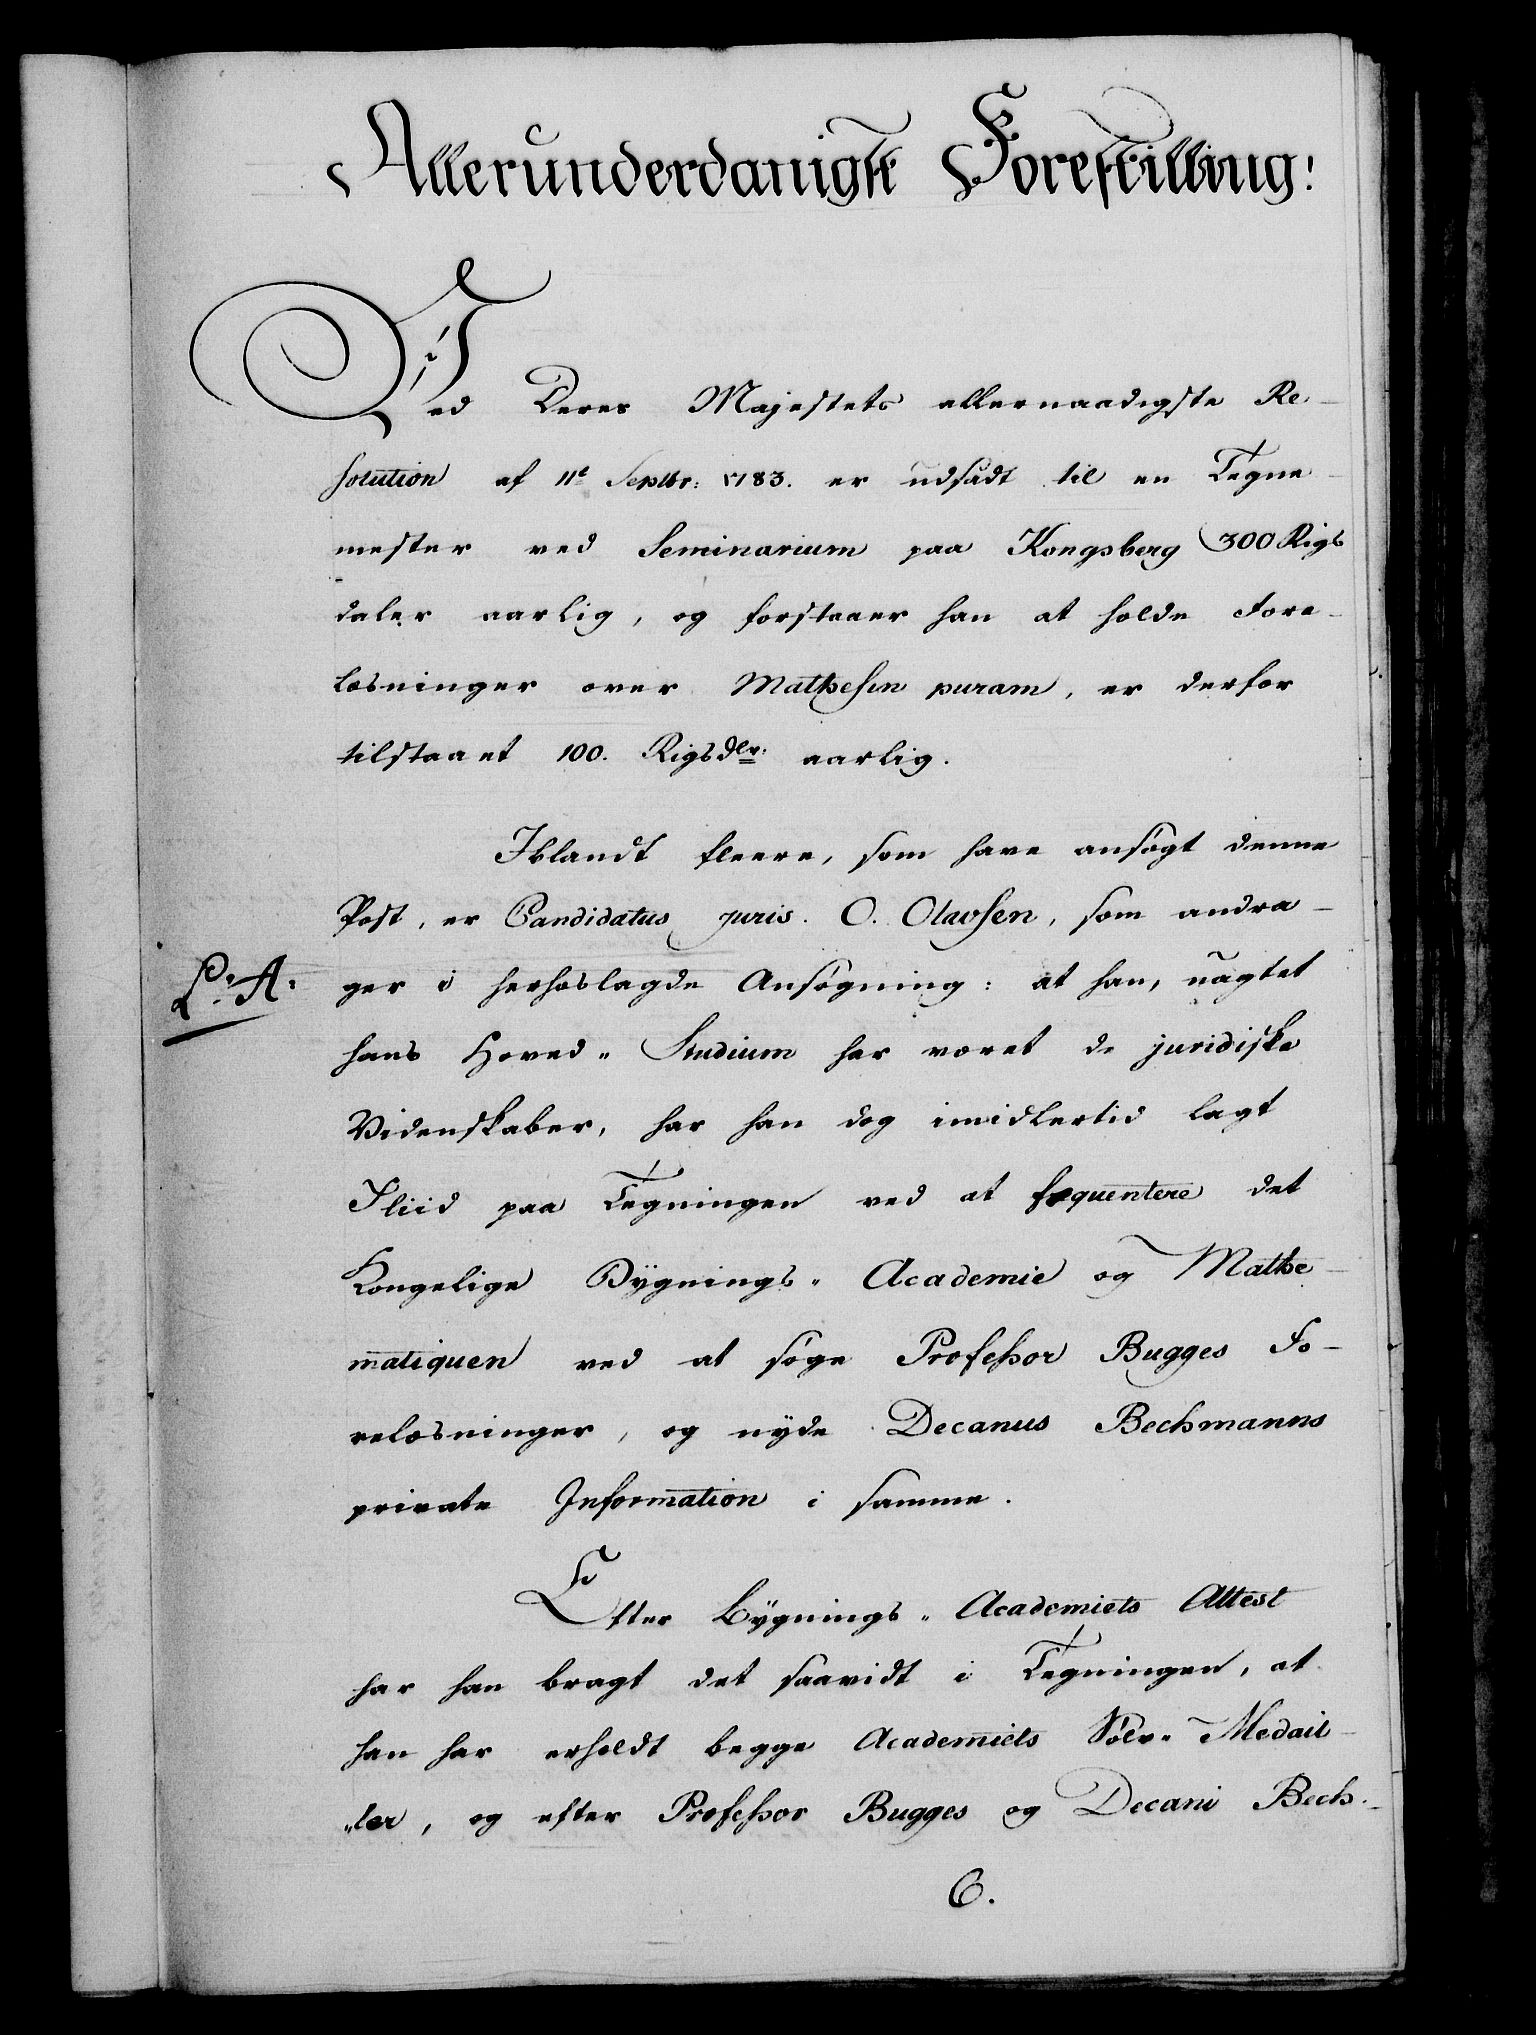 Allerunderdanigst Forestilling!
Ved Deres Majestets allernaadigste Re-
solution af 11te Septbr: 1783. er udsadt til en Tegne-
mester ved Seminarium paa Kongsberg 300 Rigs
daler aarlig, og forstaaer han at holde Fore-
læsninger over Mathesin puram, er derfor
tilstaaet 100. Rigsdlr: aarlig.
Iblandt fleere, som have ansøgt denne
Post, er Candidatus juris. O. Olavsen, som andra-
L: A:
ger i herhoslagde Ansøgning: at han, uagtet
hans Hoved- Studium har været de juridiske
Videnskaber, har han dog imidlertid lagt
Fliid paa Tegningen ved at frequentere det
Kongelige Bygnings- Academie og Mathe-
matiquen ved at søge Professor Bugges Fo-
relæsninger, og nyde Decanus Bechmanns
private Information i samme.
Efter Bygnings- Academiets Attest
har han bragt det saavidt i Tegningen, at
han har erholdt begge Academiets Sølv- Medail-
„ler, og efter Professor Bugges og Decani Bech-
C.